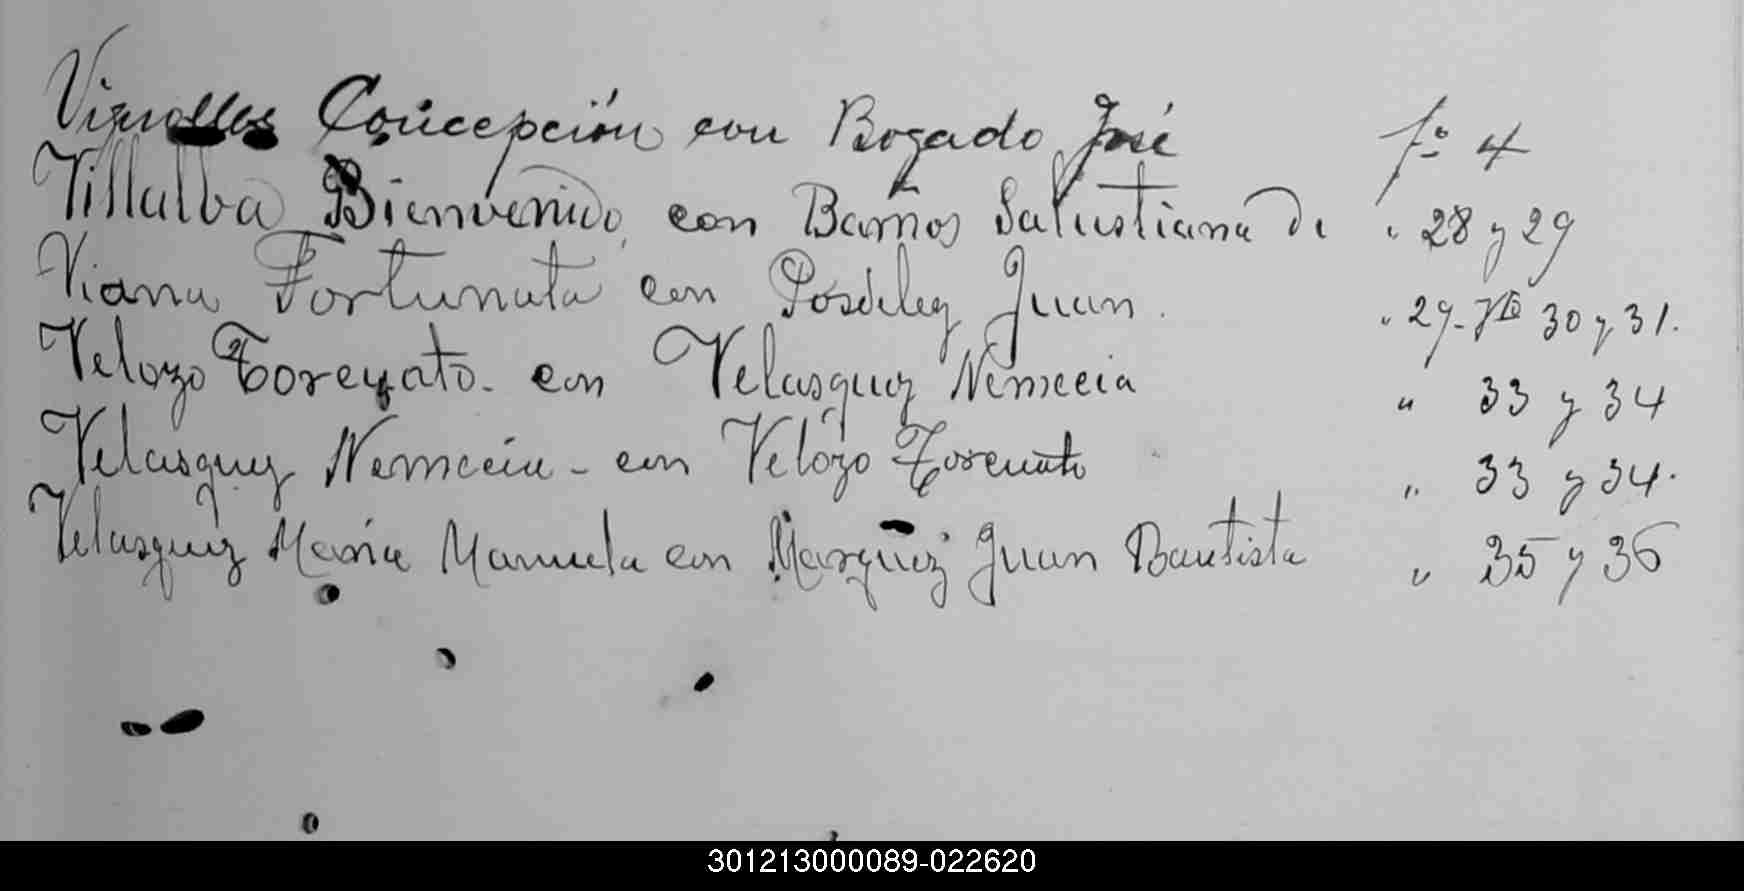 Vignolles Concepción con Bogado José fo 4
Villalba Bienvenido con Barrios Salustiana de " 28 y 29
Viana Fortunata con Posdeley Juan. " 29-Vto 30 y 31.
Velozo Torcuato - con Velasquez Nemecia " 33 y 34
Velasquez Nemecia - con Velozo Torcuato " 33 y 34.
Velasquez María Manuela con Marquez Juan Bautista " 35 y 36
301213000089-022620